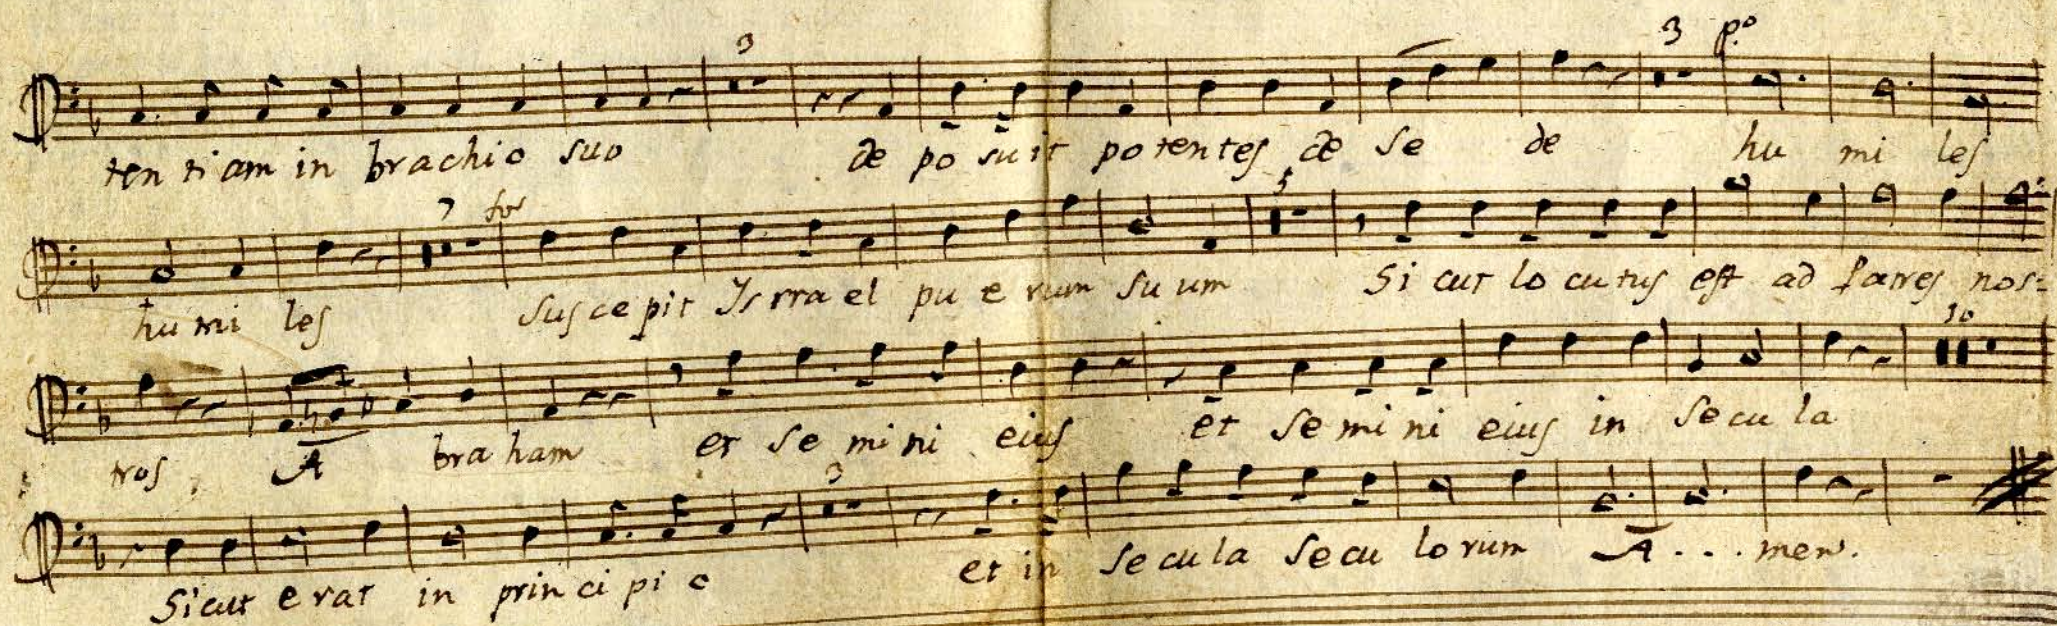 3 3 p.o
ten ti am in bra chi o suo de po su it po ten tes de se de hu mi les
7 for 5
hu mi les sus ce pit Is rra el pu e rum su um Si cut lo cu tus est ad patres nos=
10
tros A bra ham et se mi ni eius et se mi ni eius in se cu la
3
Sicut e rat in prin ci pi o et in se cu la se cu lo rum A . . . men.